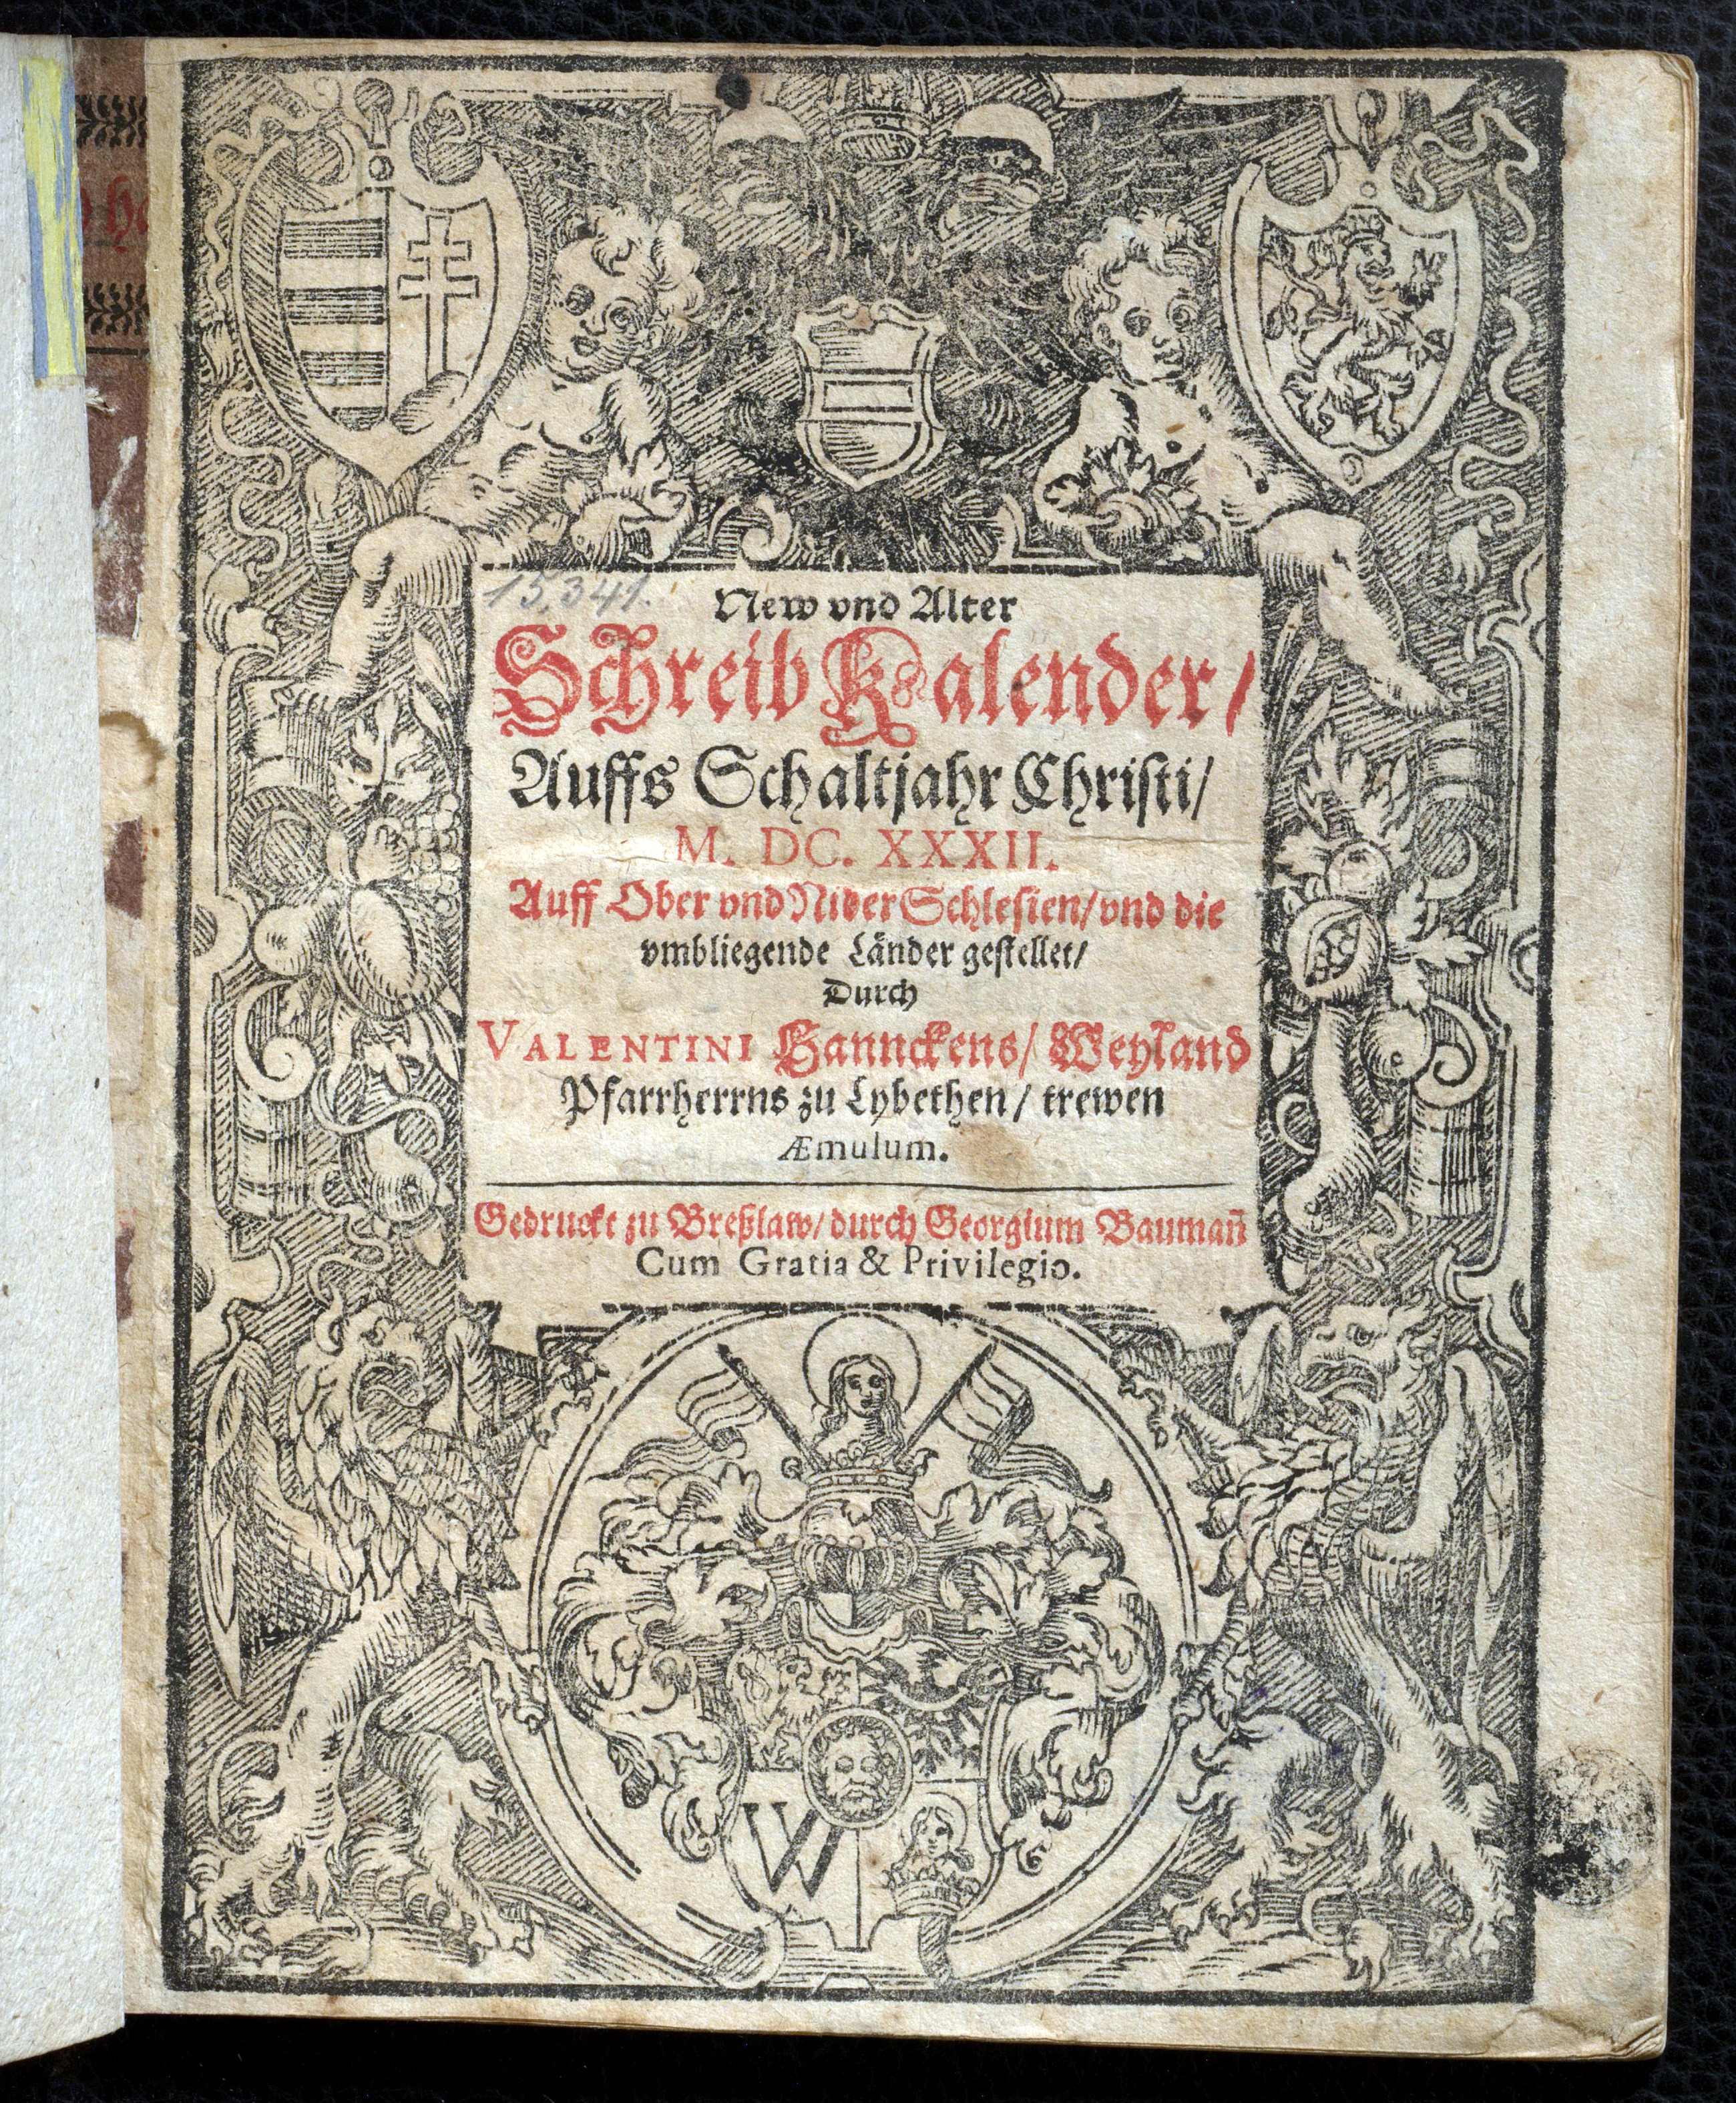 15,341.
New vnd Alter
Schreib Kalender/
Auffs Schaltjahr Christi/
M. DC. XXXII.
Auff Ober vnd Nider Schlesien/ vnd die
vmbliegende Länder gestellet/
Durch
VALENTINI Hannckens/ Weyland
Pfarrherrns zu Lybethen/ trewen
Æmulum.
Gedruckt zu Breßlaw/ durch Georgium Baumañ
Cum Gratia & Privilegio.
W